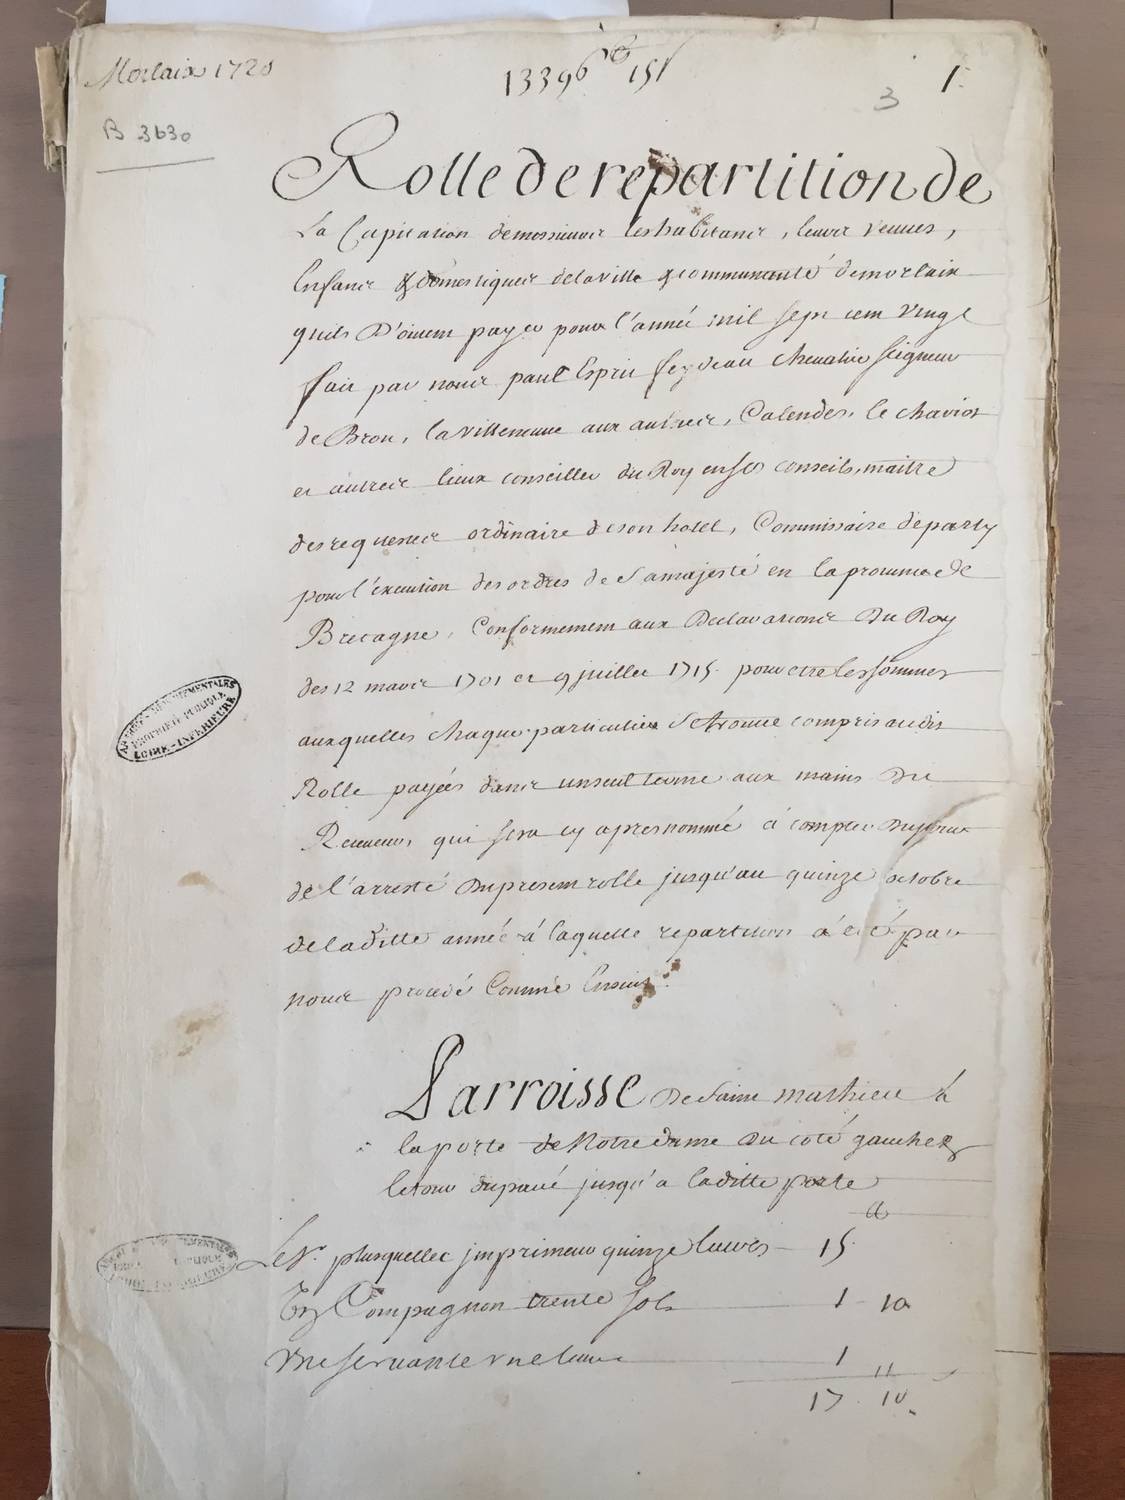 Morlaix 1720
13396 lb 15 s
3
1
B 3630
Rolle de repartition de
La Capitation de messieurs les habitans, leurs veuves,
Enfans & domestiques de la ville & communauté de morlaix
quils D'oivent payer pour l'année mil sept cent vingt
fait par nous paul Esprit feydeau chevalier seigneur
de Brou, la villeneuve aux aulnes, Calendes, le chariot
et autres lieux conseiller du Roy en ses conseils, maitre
des requestes ordinaire de son hotel, Commissaire departy
pour l'execution des ordres de sa majesté en la province de
Bretagne, Conformement aux Declarations Du Roy
des 12 mars 1701 et 9 juillet 1715 pour etre les sommes
auxquelles chaque particulier se trouve compris audit
Rolle payées dans un seul terme aux mains Du
Receveur, qui sera cy apres nommé à compter du jour
de l'arresté du present rolle jusqu'au quinze octobre
de la ditte année à laquelle repartition à eté par
nous procedé Comme Ensuit.
ARCHIVES DÉPARTEMENTALES
PROPRIÉTÉ PUBLIQUE
LOIRE-INFÉRIEURE
Parroisse De Saint mathieu à
la porte de Notre dame Du coté gauche &
le tour du pavé jusqu'a la ditte porte
lt
Le Sr. plusquellec jmprimeur quinze livres 15
Compagnon trente sols 1 10
vne servante vne livre 1 11
17 10